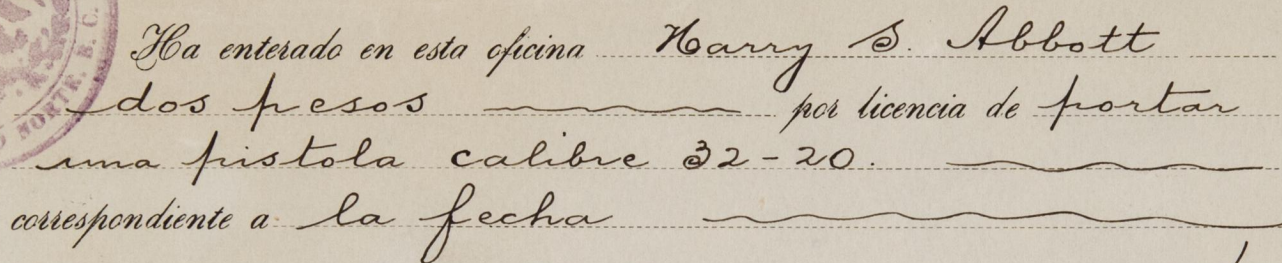 Ha enterado en esta oficina Harry S. Abbott
dos pesos por licencia de portar
una pistola calibre 32-20.
correspondiente a la fecha
NORTE. B.C.